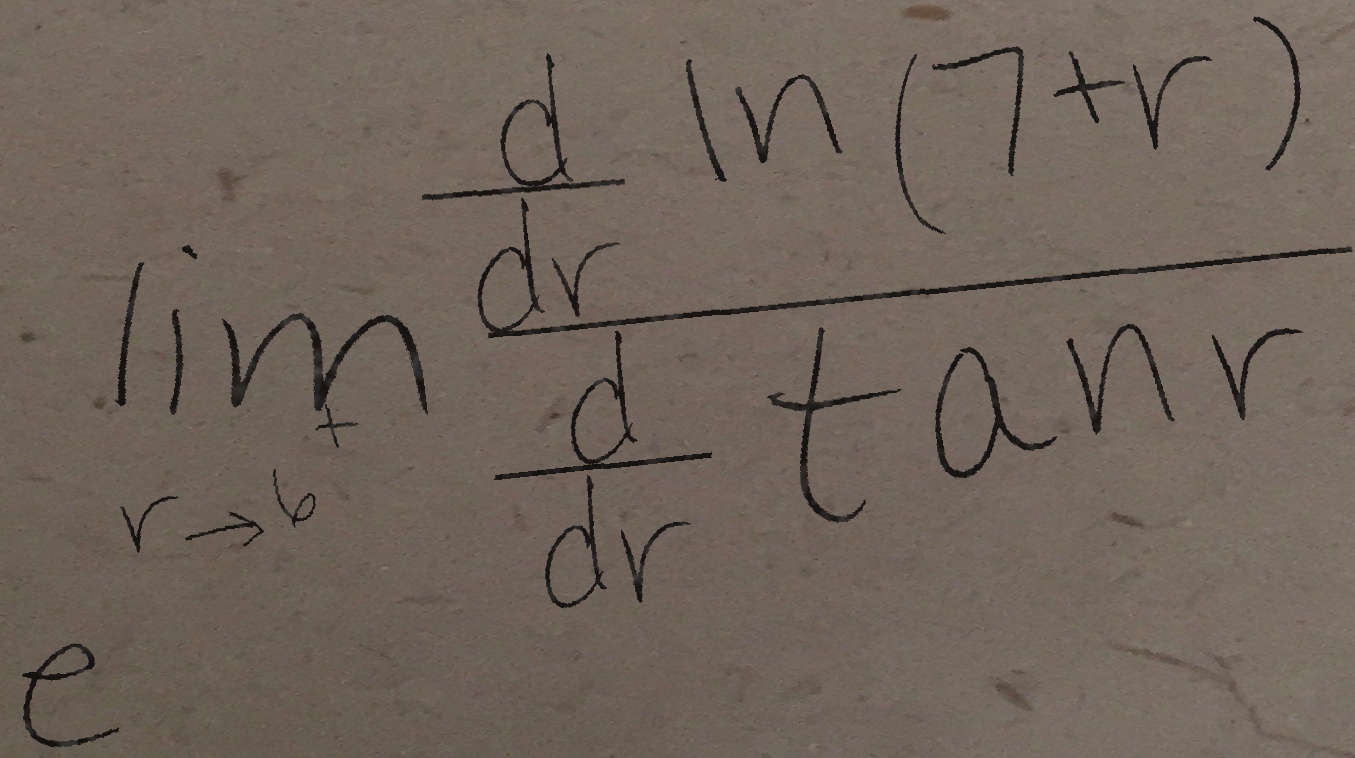 e^{\lim_{r \to 6^{+}} \frac{\frac{d}{dr} \ln(7+r)}{\frac{d}{dr} \tan r}}